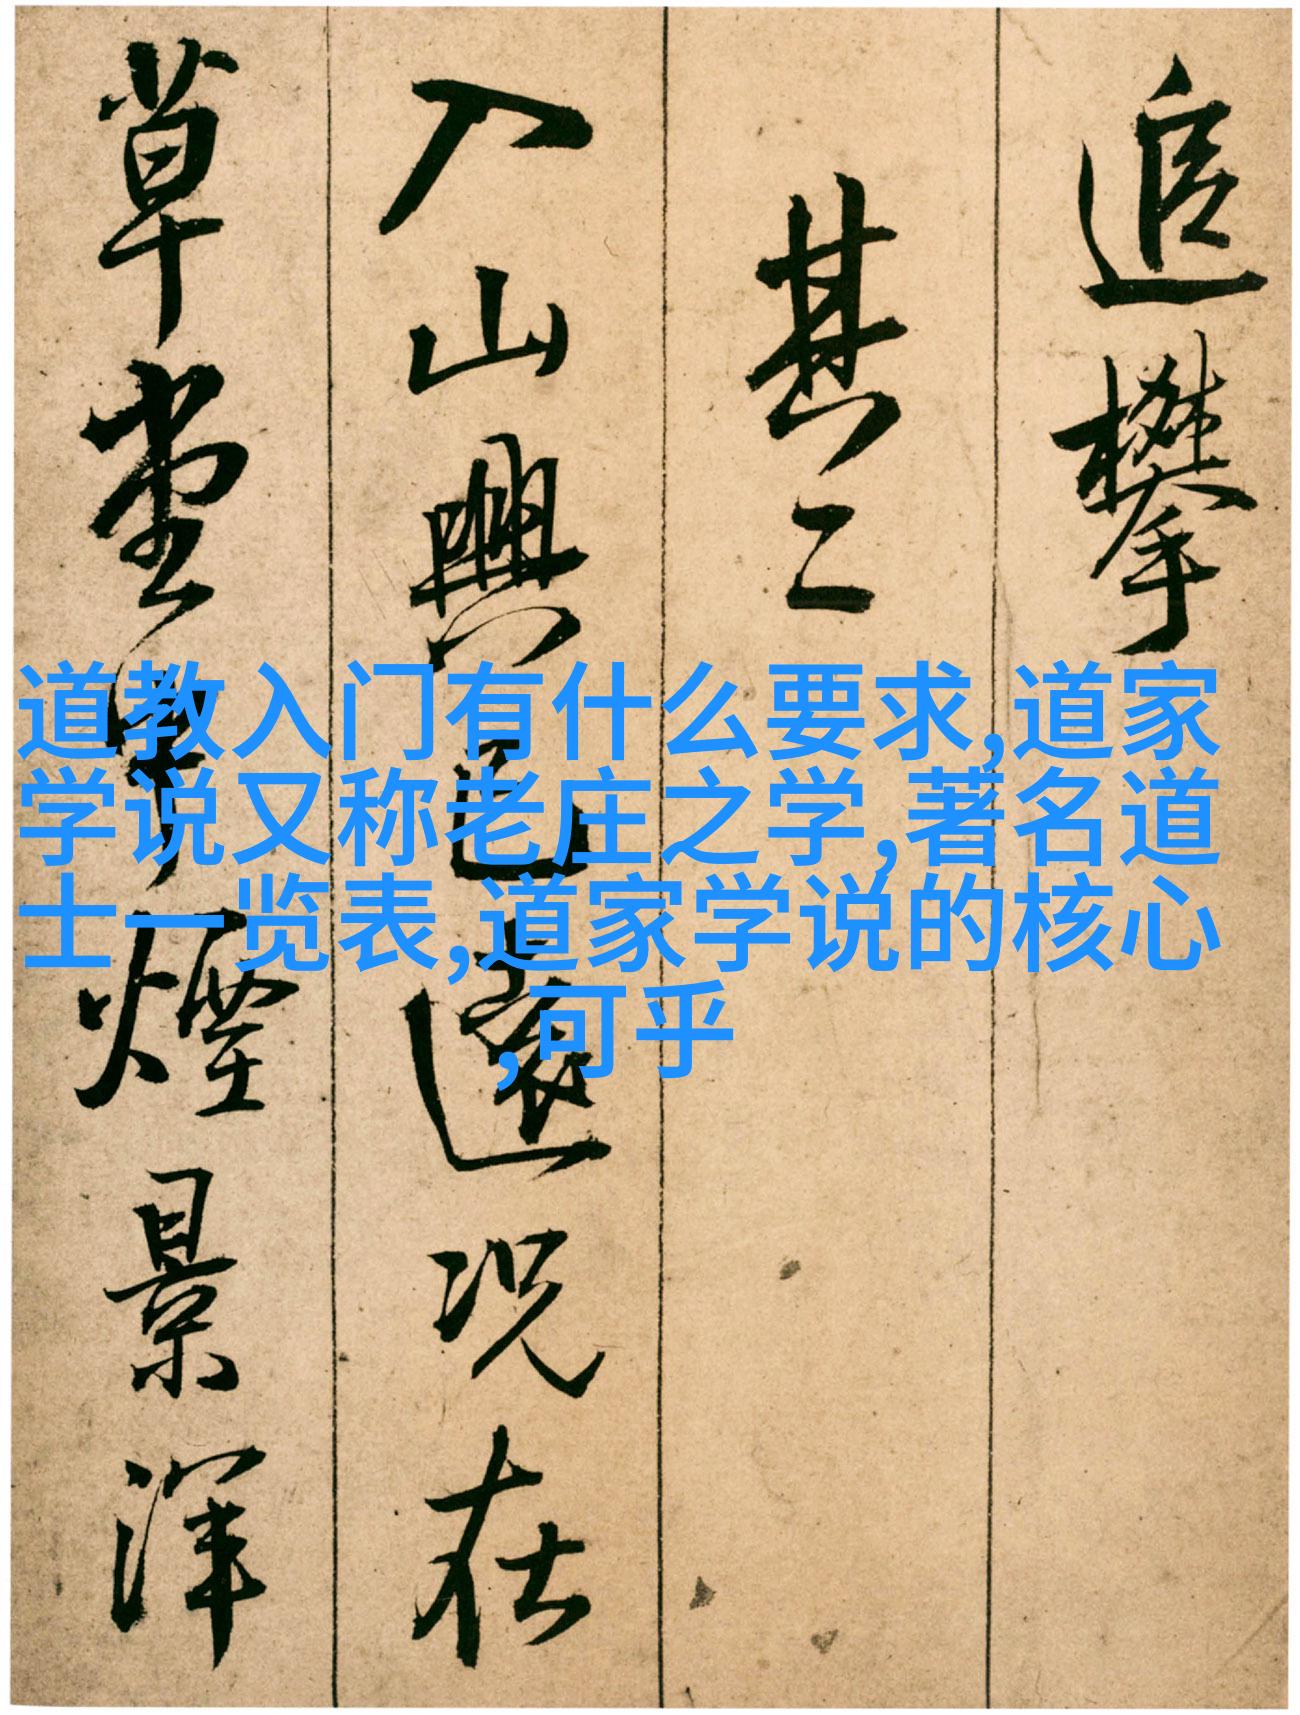 追攀
其二
入山興已遠况在
草堂中煙景渾
道教入门有什么要求,道家
学说又称老庄之学,著名道
士一览表,道家学说的核心
,可乎